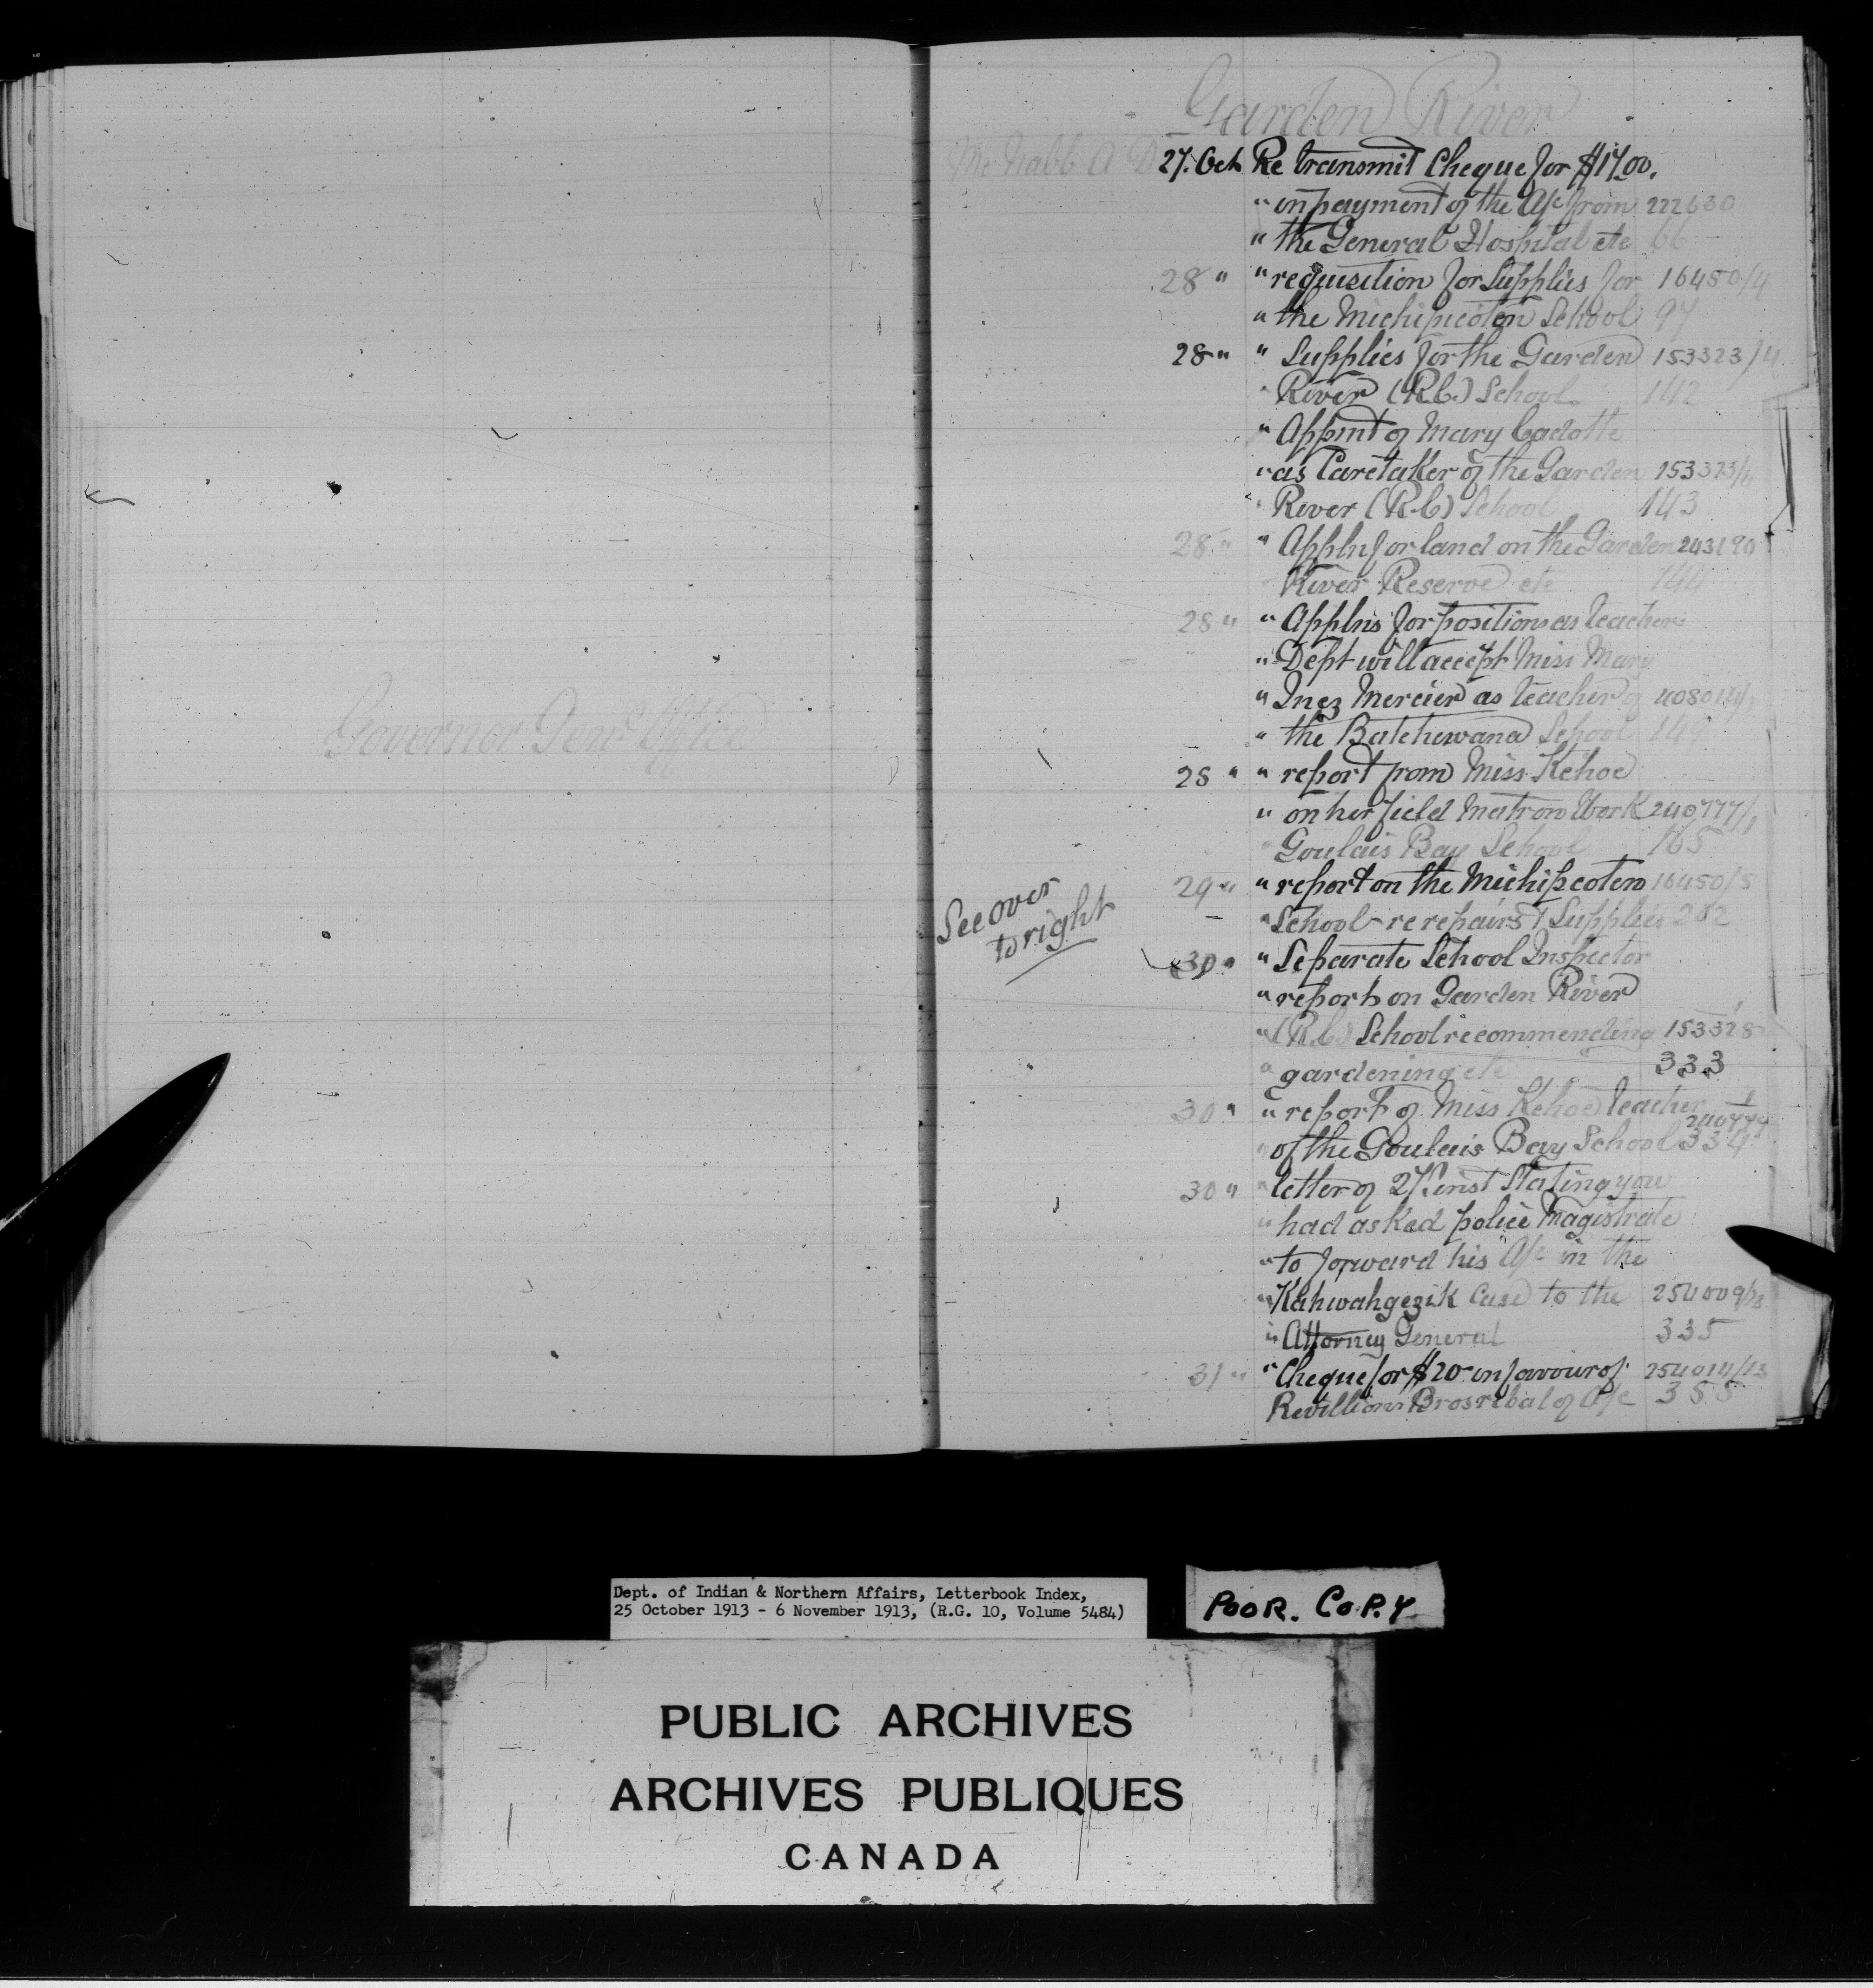 Governor Genl Office
Garden River
McNabb A D 27. Oct Re transmit Cheque for $17.00.
" in payment of the A/c from 222630
" the General Hospital etc 66
28 " " requisition for Supplies for 16450/4
" the Michipicoten School 97
28 " " Supplies for the Garden 153323/4
" River (R.C.) School. 142
" Appmt of Mary Cadotte
" as Caretaker of the Garden 153323/4
" River (R.C) School 143
28 " " Appln for land on the Garden 243190
River Reserve etc 144
28 " " Applns for position as teacher
" Dept will accept Miss Mary
" Inez Mercier as teacher of 408014/1
" the Batchewana School 149
28 " " report from Miss Kehoe
" on her field Matron Work 240777/1
" Goulais Bay School 165
29 " " report on the Michipcoten 16450/5
" School re repairs & Supplies 202
See over
to right
30 " " Separate School Inspector
" reports on Garden River
" (R.C.) School recommending 153328
" gardening etc 333
30 " " report of Miss Kehoe teacher 240777
" of the Goulais Bay School 334
30 " " letter of 27th inst Stating you
" had asked police Magistrate
" to forward his A/c in the
" Kahwahgezik Case to the 254009/13
" Attorney General 335
31 " " Cheque for $20 - in favour of 254014/13
Revillion Bros re bal of A/c 355
Dept. of Indian & Northern Affairs, Letterbook Index,
25 October 1913 - 6 November 1913, (R.G. 10, Volume 5484)
POOR. COPY
PUBLIC ARCHIVES
ARCHIVES PUBLIQUES
CANADA